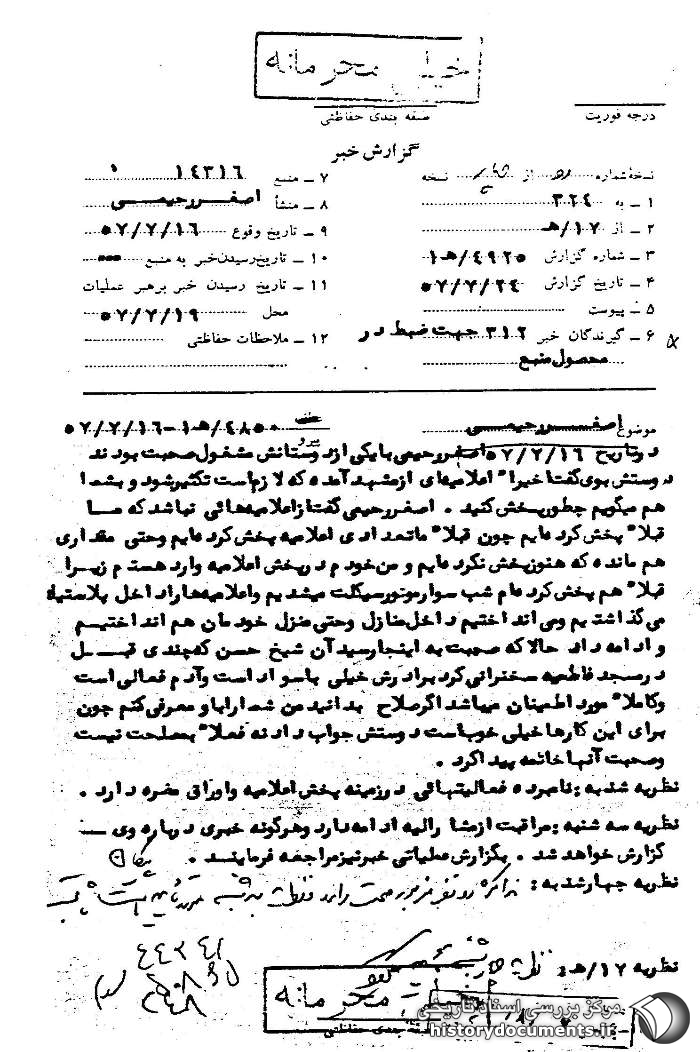 خیلی محرمانه
درجه فوریت
طبقه بندی حفاظتی
گزارش خبر
نسخهٔ شماره از نسخه
۱ ـ به ۳۲۴
۲ ـ از ۱۷/هـ
۳ ـ شماره گزارش ۱هـ/۴۹۲۵
۴ ـ تاریخ گزارش ۵۷/۷/۲۴
۵ ـ پیوست
۶ ـ گیرندگان خبر ۳۱۲ جهت ضبط در
محصول منبع
۷ ـ منبع ۱۴۳۱۶
۸ ـ منشأ اصغر رحیمی
۹ ـ تاریخ وقوع ۵۷/۷/۱۶
۱۰ ـ تاریخ رسیدن خبر به منبع ـــ
۱۱ ـ تاریخ رسیدن خبر برهبر عملیات
محل ۵۷/۷/۱۹
۱۲ ـ ملاحظات حفاظتی
موضوع اصغر رحیمی
عطف
پیرو
۵۷/۷/۱۶-۱هـ/۴۸۵۰
در تاریخ ۵۷/۷/۱۶ اصغر رحیمی با یکی از دوستانش مشغول صحبت بودند
دوستش بوی گفت اخیرا" اعلامیه‌ای از مشهد آمده که لازم است تکثیر شود و بشما
هم میگویم چطور پخش کنید . اصغر رحیمی گفت از اعلامیه‌هائی نباشد که ما
قبلا" پخش کرده‌ایم چون قبلا" ما تعدادی اعلامیه پخش کرده‌ایم و حتی مقداری
هم مانده که هنوز پخش نکرده‌ایم و من خودم در پخش اعلامیه وارد هستم زیرا
قبلا" هم پخش کرده‌ام شب سوار موتور سیکلت میشدیم و اعلامیه‌ها را داخل پلاستیک
می‌گذاشتیم و می‌انداختیم داخل منازل و حتی منزل خودمان هم انداختیم
و ادامه داد حالا که صحبت به اینجا رسید آن شیخ حسن که چندی قبل
در مسجد فاطمیه سخنرانی کرد برادرش خیلی با سواد است و آدم فعالی است
و کاملا" مورد اطمینان میباشد اگر صلاح بدانید من شما را با او معرفی کنم چون
برای این کارها خیلی خوب است دوستش جواب داد نه فعلا" بمصلحت نیست
و صحبت آنها خاتمه پیدا کرد .
نظریه شنبه : نامبرده فعالیتهائی در زمینه پخش اعلامیه و اوراق مضره دارد .
نظریه سه شنبه : مراقبت از مشارالیه ادامه دارد و هرگونه خبری درباره وی ـ
گزارش خواهد شد . بگزارش عملیاتی خبر نیز مراجعه فرمایند .
نظریه چهارشنبه :
نظریه ۱۷/هـ :
خیلی محرمانه
طبقه بندی حفاظتی
مرکز بررسی اسناد تاریخی
historydocuments.ir